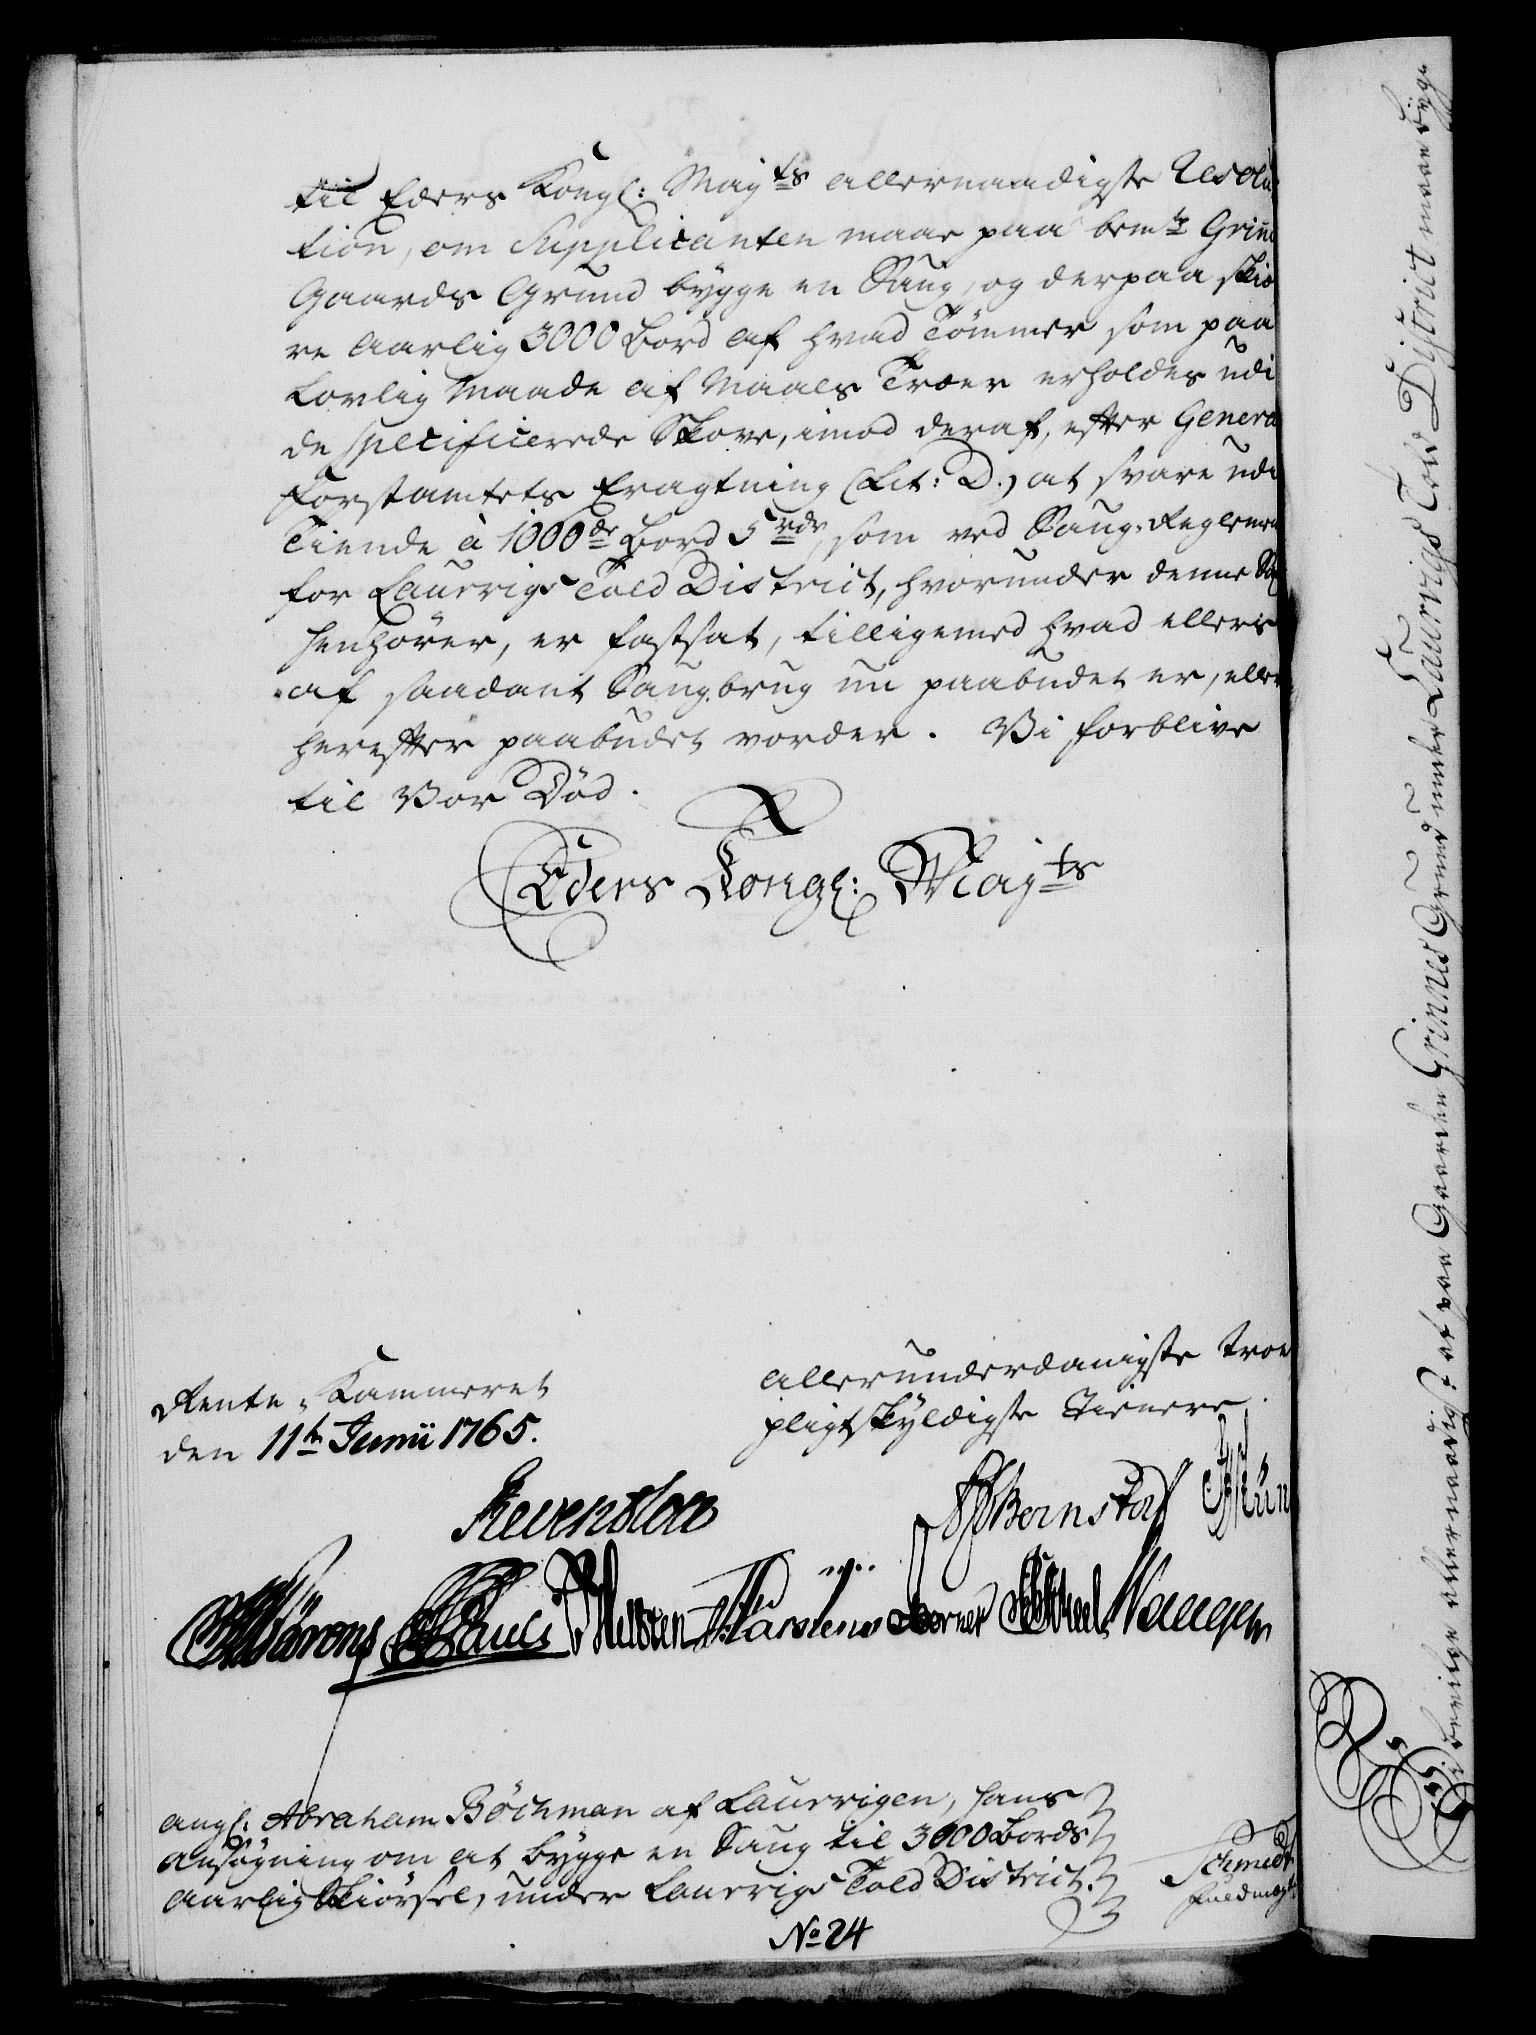 til Eders Kongl: Majts allernaadigste Resolu
tion, om Supplicanten maae paa bemte Grinne
Gaards Grund bygge en Saug, og derpaa skiæ
re Aarlig 3000 Bord af hvad Tømmer som paa
Lovlig Maade af Maals Træer erholdes udi
de specificerede Skove, imod deraf, efter General
Forstamtets Eragtning (Lit: D.) at svare udi
Tiende à 1000de Bord 5 rdr, som ved Saug-Reglement
for Laurvigs Told District, hvorunder denne Sag
henhører, er fastsat, tilligemed hvad ellers
af saadant Saugbrug nu paabudet er, eller
herefter paabudet vorder. Vi forblive
til Vor Død.
Eders Kongl: Majts
allerunderdanigste troe
pligtskyldigste Tienere.
Rente-Kammeret
den 11te Junii 1765.
Reventlow Bernstorf
Pauli Helsten Karstens Berner Wangen
angl: Abraham Böchman af Laurvigen, hans
Ansøgning om at bygge en Saug til 3000 Bords
aarlig Skiørsel, under Laurvigs Told District.
Schmidt
Fuldmægt
No 24
Vi bevilge allernaadigst at paa Gaarden Grinnes Grund under Laurvigs Told District maae byg-